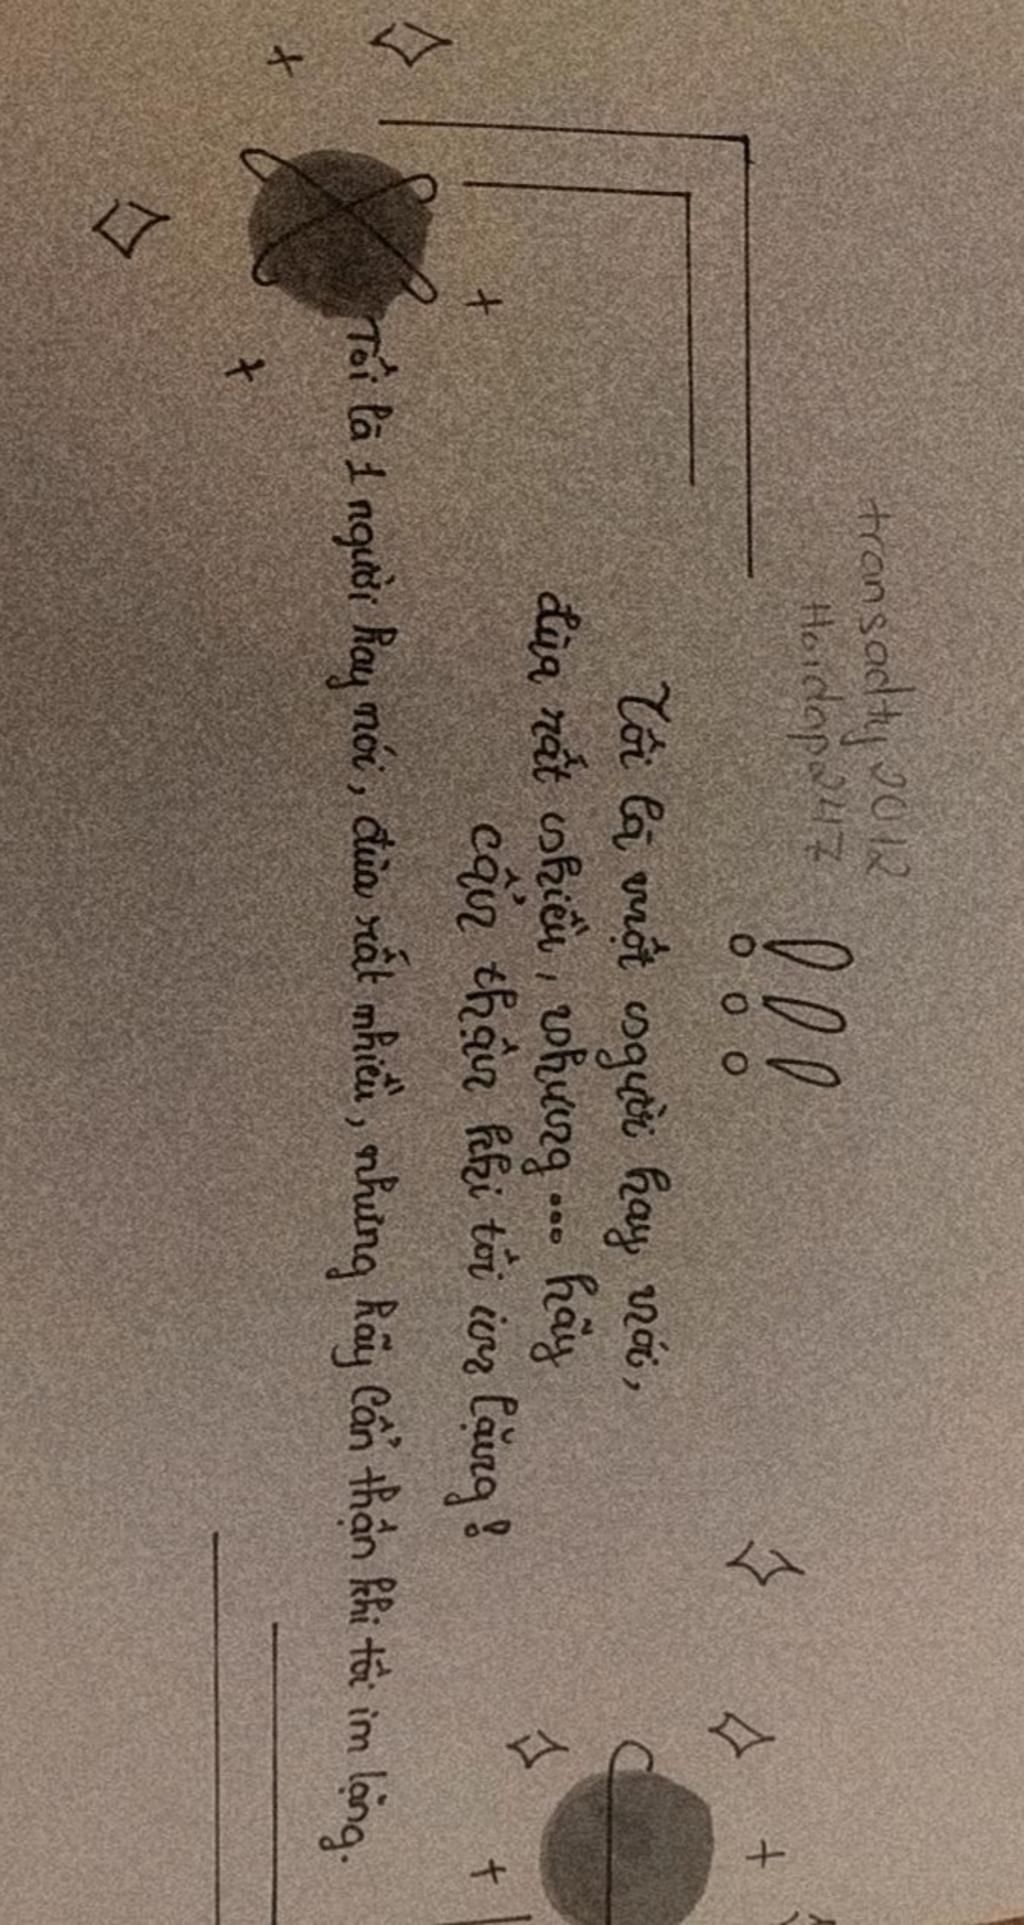 transadly2012
Hoidap247
Tôi là một người hay nói,
đùa rất nhiều, nhưng... hãy
cẩn thận khi tôi im lặng!
Tôi là 1 người hay nói, đùa rất nhiều, nhưng hãy cẩn thận khi tôi im lặng.